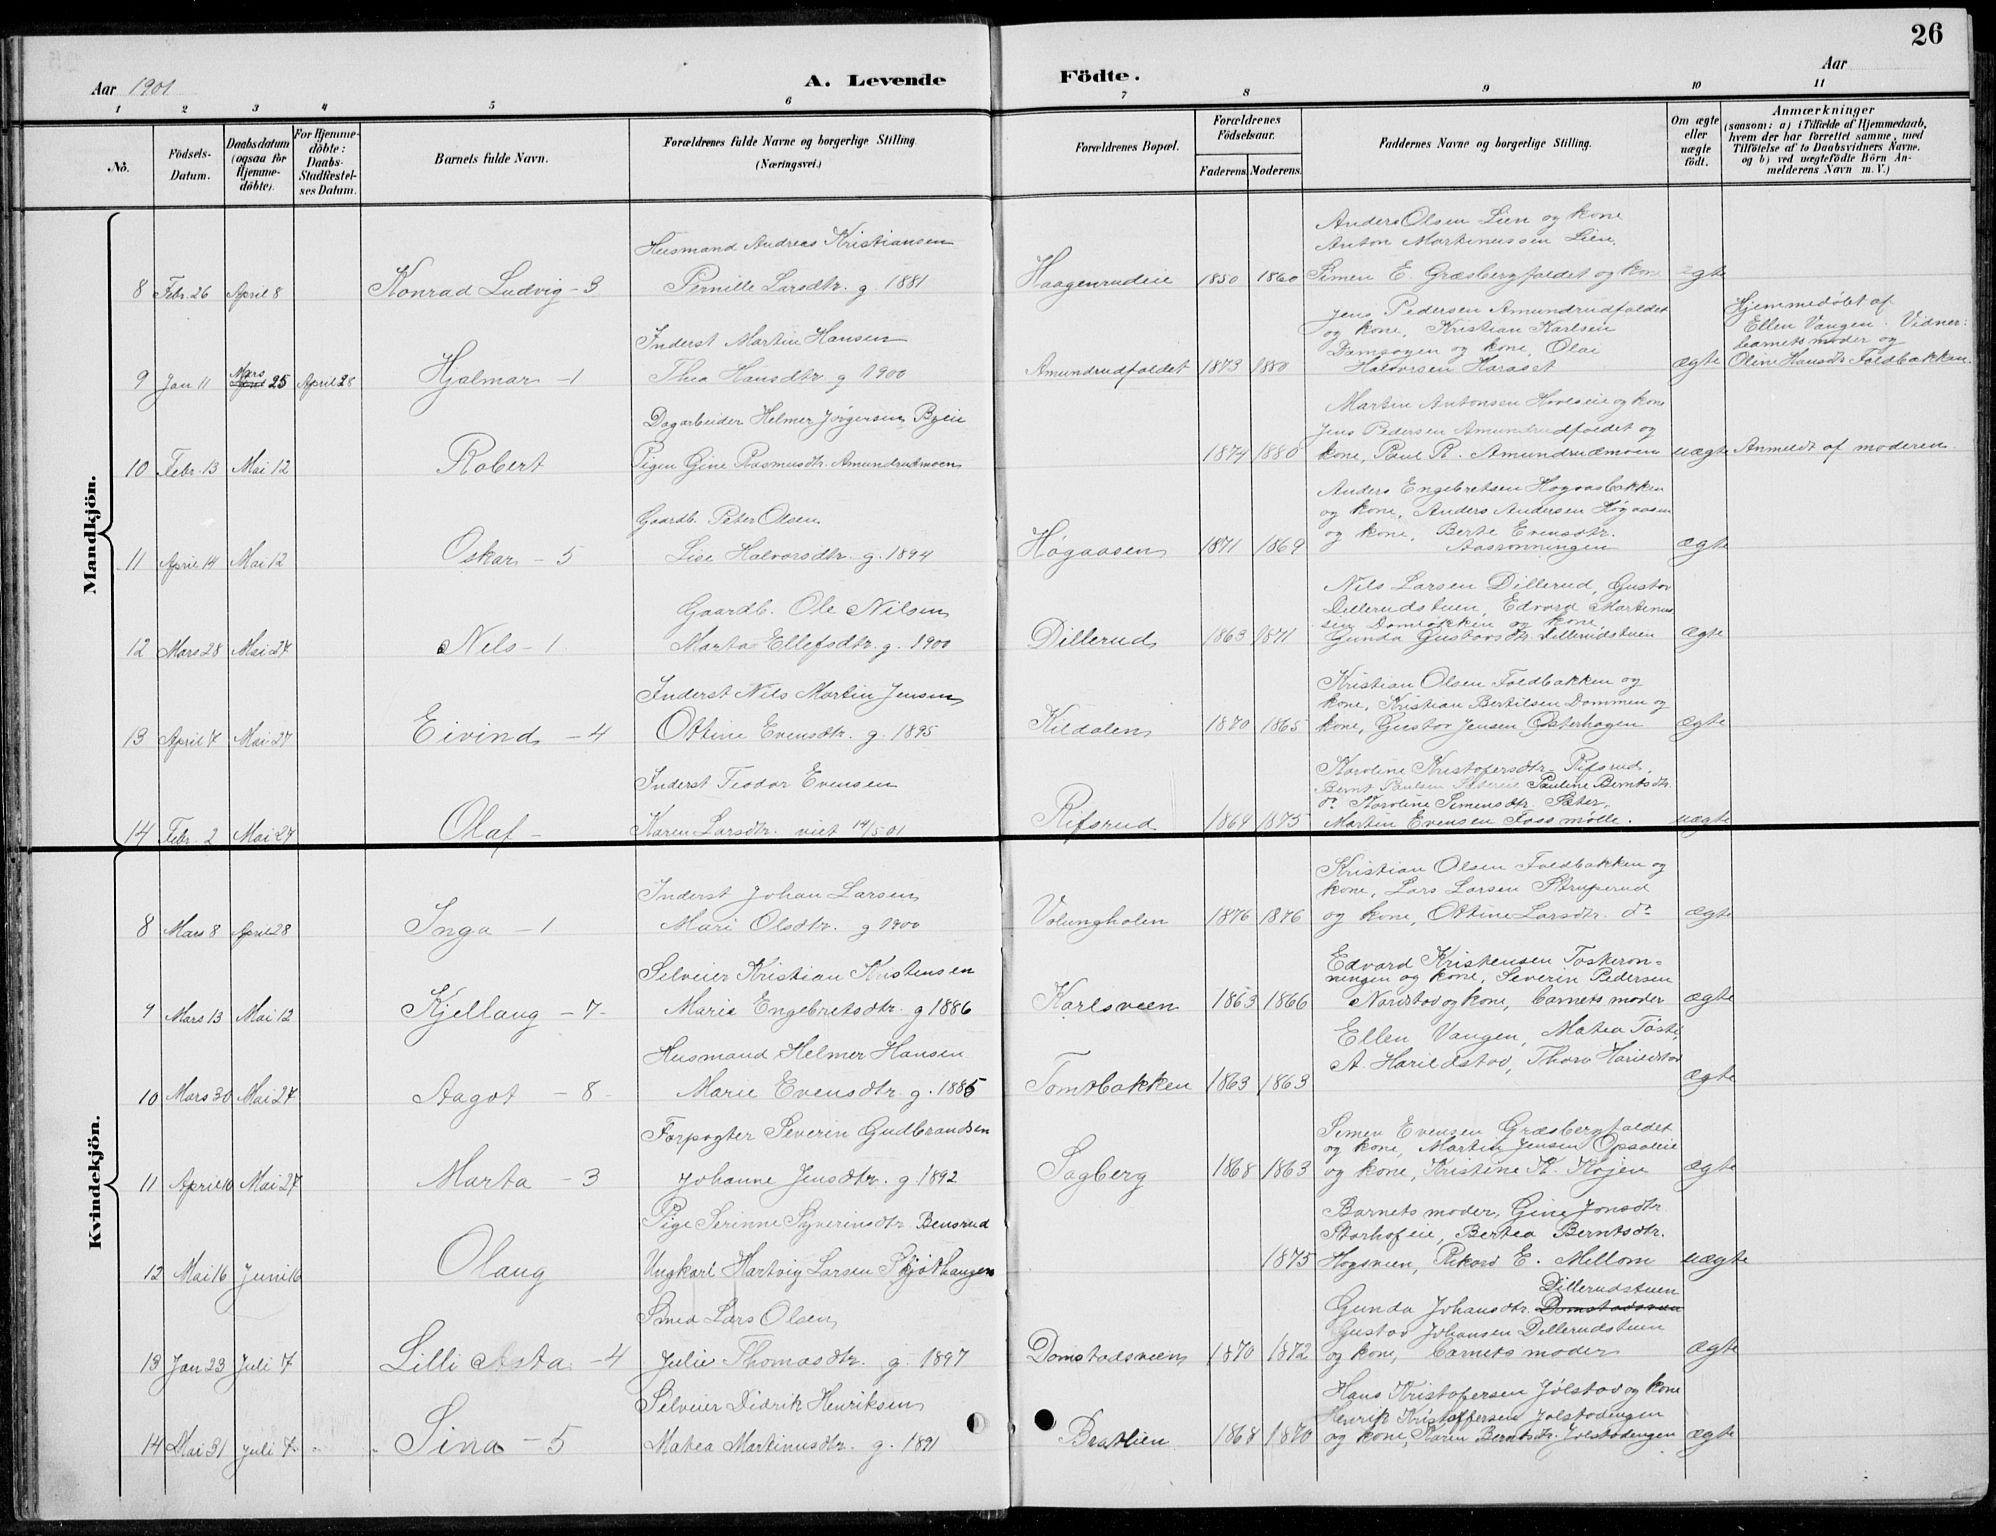 26
Aar 1901
A. Levende Födte.
Aar
1 2 3 4 5 6 7 8 9 10 11
No.
Födsels-Datum.
Daabsdatum (ogsaa for Hjemme-döbte).
For Hjemme-döbte: Daabs-Stadfestel-ses Datum.
Barnets fulde Navn.
Forældrenes fulde Navne og borgerlige Stilling (Næringsvei.)
Forældrenes Bopæl.
Forældrenes Födselsaar.
Faderens. Moderens.
Faddernes Navne og borgerlige Stilling.
Om ægte eller uægte födt.
Anmærkninger (saasom: a) i Tilfælde af Hjemmedaab, hvem der har forrettet samme, med Tilföielse af to Daabsvidners Navne, og b) ved uægtefödte Börn An-melderens Navn m. V.)
Mandkjön.
Husmand Andreas Kristiansen
Anders Olsen Lien og kone
Anton Martinussen Lien,
8 Febr. 26 April 8 Konrad Ludvig - 3 Pernille Larsdtr. g. 1881 Haagenrudeie 1850 1860 Simen E. Græsbergfaldet og kone ægte
Inderst Martin Hansen
Jens Pedersen Amundrudfaldet
og kone, Kristian Karlsen
Damsagen og kone, Olai
Hjemmedøbt af
Ellen Vangen. Vidner:
barnets moder og
9 Jan 11 Mars 25 April 28 Hjalmar - 1 Thea Hansdtr. g 1900 Amundrudfaldet 1873 1880 Halvorsen Haraset ægte Oline Hansdtr Foldbakken
Dagarbeider Helmer Jørgensen Byeie
Martin Antonsen Hovleie og kone
Jens Pedersen Amundrudfaldet og
10 Febr. 13 Mai 12 Robert Pigen Gine Rasmusdtr. Amundrudmoen 1874 1880 kone, Paul R. Amundrudmoen uægte Anmeldt af moderen.
Gaardb. Peter Olsen
Anders Engebretsen Høgaasbakken
og kone, Anders Andersen Høgaasen
og kone, Berte Evensdtr.
11 April 14 Mai 12 Oskar - 5 Lise Halvorsdtr. g. 1894 Høgaasen 1871 1869 Aasrønningen ægte
Gaardb. Ole Nilsen
Nils Larsen Dillerud, Gustav
Dillerudstuen, Edvard Martinus
sen Domløkken og kone
12 Mars 28 Mai 27 Nels - 1 Marta Ellefsdtr. g. 1900 Dillerud 1863 1871 Gunda Gustavsdtr. Dillerudstuen ægte
Inderst Nils Martin Jensen
Kristian Olsen Foldbakken og
kone, Kristian Bertilsen Dammen og
13 April 7 Mai 27 Eivind - 4 Ottine Evensdtr. g. 1895 Kildalen 1870 1865 kone, Gustav Jensen Østerhagen ægte
Inderst Teodor Evensen
Karoline Kristofersdtr. Rifsrud,
Bernt Paulsen Pauline Berntsdtr.
do Karoline Simensdtr. Sater,
14 Febr. 2 Mai 27 Olaf - Karen Larsdtr. viet 14/5 01 Rifsrud 1864 1875 Martin Evensen Fossmølle. uægte
Kvindekjön.
Inderst Johan Larsen
Kristian Olsen Foldbakken og
kone, Lars Larsen Struperud
8 Mars 8 April 28 Inga - 1 Mari Olsdtr. g 1900 Volungholen 1876 1876 og kone, Ottine Larsdtr. do ægte
Selveier Kristian Kristensen
Edvard Kristensen Taskerøn-
ningen og kone, Severin Pedersen
9 Mars 13 Mai 12 Kjellaug - 7 Marie Engebretsdtr. g 1886 Karlsveen 1863 1866 Nordstov og kone, barnets moder ægte
Husmand Helmer Hansen
Ellen Vangen, Matea Tøste,
A. Harildstad, Thora Harildstad
10 Mars 30 Mai 27 Aagot - 8 Marie Evensdtr. g. 1885 Tomtbakken 1863 1863 ægte
Forpagter Severin Gudbrandsen
Simen Evensen Græsbergfaldet
og kone, Martin Jensen Opsaleie
11 April 10 Mai 27 Marta - 3 Johanne Jensdtr. g 1892 Sagberg 1868 1863 og kone, Kristine K. Højen ægte
Pige Serinne Syverinsdtr. Bensrud
Barnets moder, Gine Jonsdtr.
Storhofeie, Bertea Berntsdtr.
12 Mai 16 Juni 16 Olaug Ungkarl Hartvig Larsen Skjøthaugen 1875 Høgsveen, Rikard E. Mellom uægte
Smed Lars Olsen
Dillerudstuen
Gunda Johansdtr. Domstadsveen
Gustav Johansen Dillerudstuen
13 Jan 23 Juli 7 Lilli Asta - 4 Julie Thomasdtr. g. 1897 Domstadsveen 1870 1872 og kone, barnets moder ægte
Selveier Didrik Henriksen
Hans Kristofersen Jølstad og kone
Henrik Kristoffersen Jolstadengen
14 Mai 31 Juli 7 Sina - 5 Matea Martinusdtr. g. 1891 Bratlien 1868 1870 og kone, Karen Berntsdtr. Jolstadengen ægte